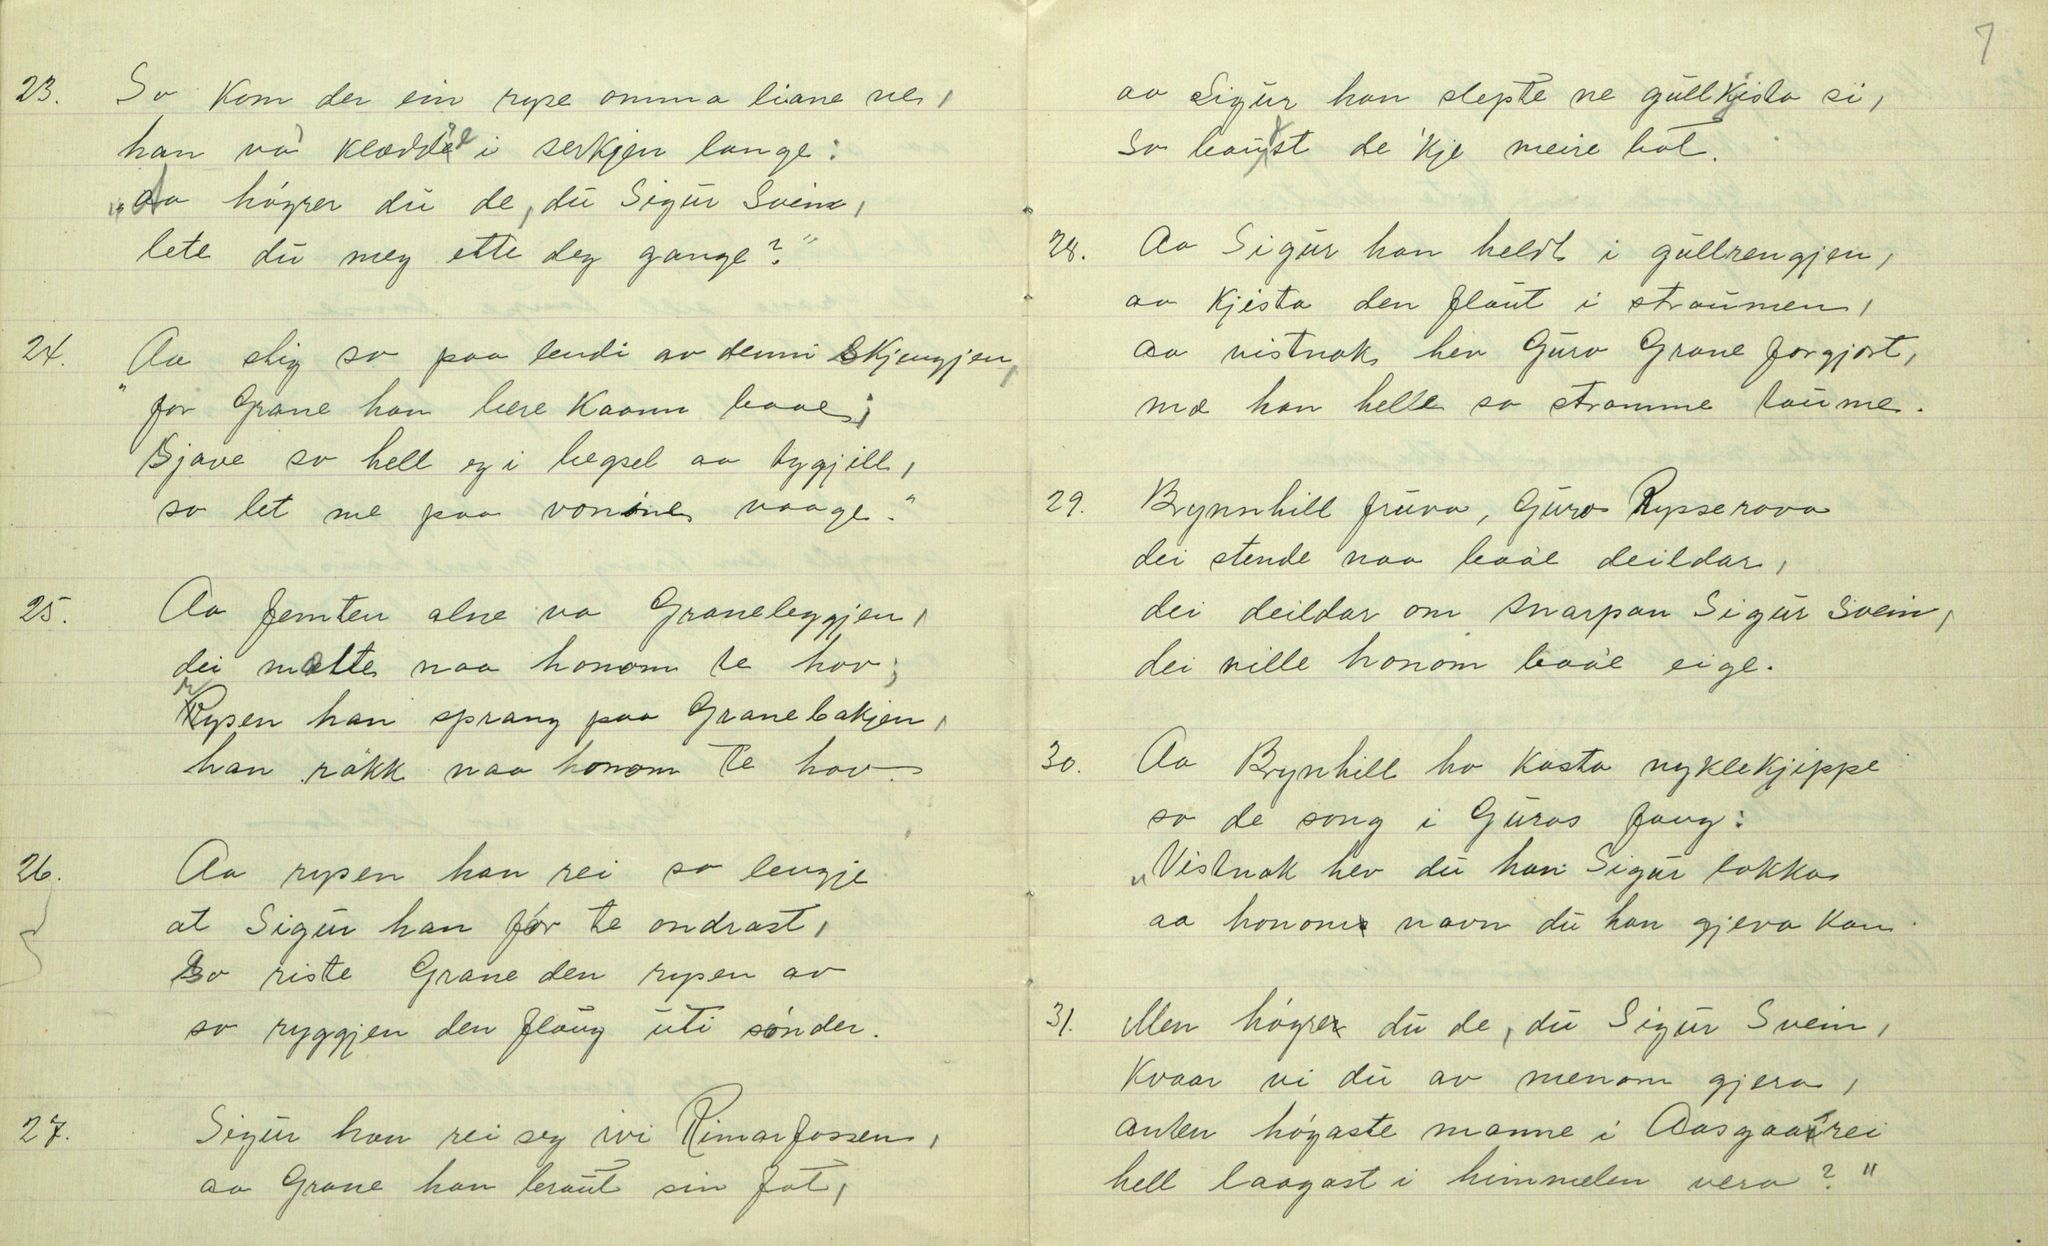 23. So kom der ein ryse omma liane ne,
han va klædde i serkjen lange:
"Aa høyrer du de, du Sigur Svein,
lete du meg ette deg gange?"
24. "Aa stig so paa lendi av denni skjengjen,
for Grane han bere kaann baae;
Sjave so hell eg i begsel aa tygjill,
so let me paa vonine vaage."
25. Aa femten alne va Graneleggjen,
dei matte naa honom te hov;
Rysen han sprang paa Granebakjen,
han rakk naa honom te hov.
26. Aa rysen han rei so lengje
at Sigur han før te ondrast,
So riste Grane den rysen av
so ryggjen den flaug uti sønder.
27. Sigur han rei seg ivi Rimarfossen,
aa Grane han braut sin fot,
7
aa Sigur han slepte ne gullkjista si,
so baust de 'kje meire bot.
28. Aa Sigur han heldt i gullrengjen,
aa kjista den flaut i straumen,
aa vistnok hev Guro Grane forgjort,
mæ han helle so stramme taume.
29. Brynnhill fruva, Guro Rysserova
dei stende naa baae deildar,
dei deildar om snarpan Sigur Svein,
dei ville honom baae eige.
30. Aa Brynhill ho kasta nyklekjippe
so de song i Guros fang:
"Vistnok hev du han Sigur lokka
aa honom navn du han gjeva kan.
31. Men høyrer du de, du Sigur Svein,
Kvaar vi du av menom gjera,
anten høgaste manne i Aasgaatrei
hell laagast i himmelen vera?"